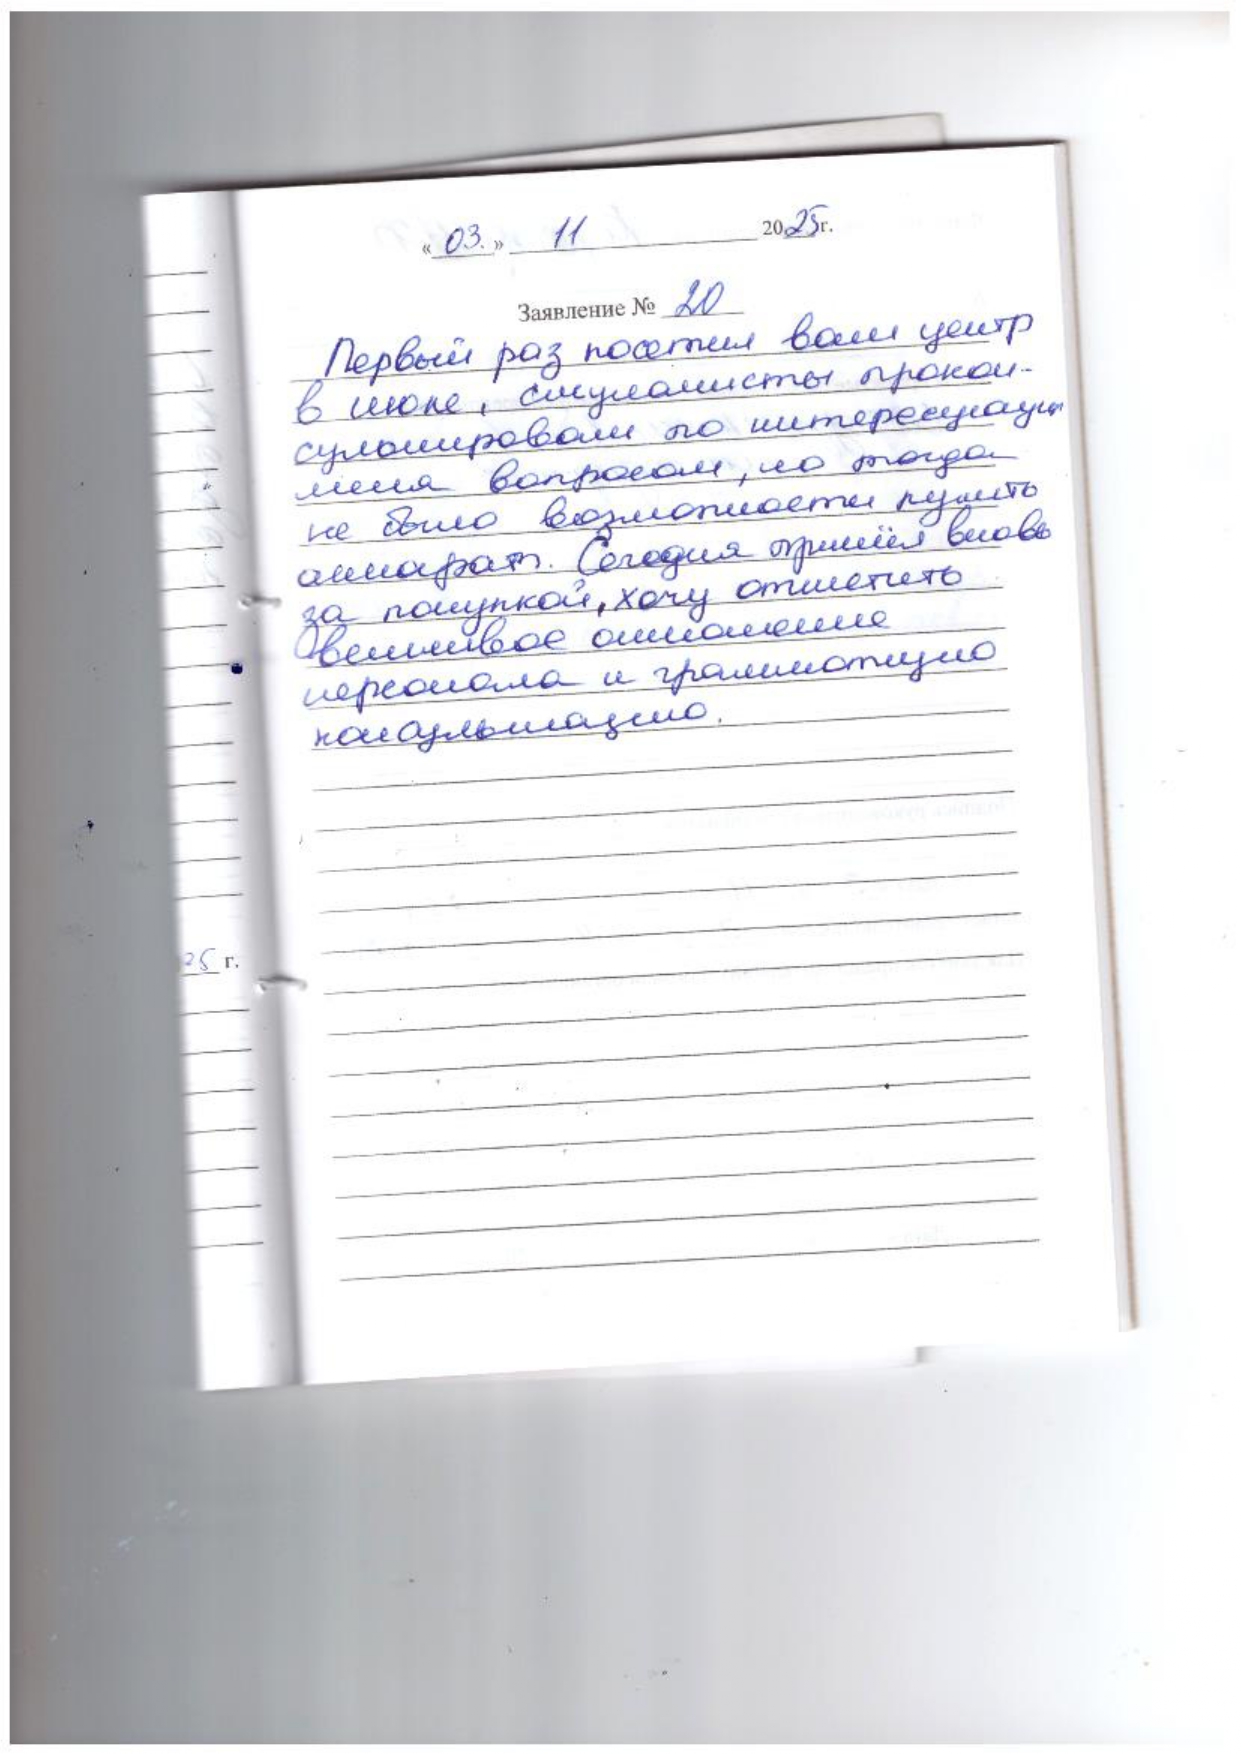 «03.» 11 2025г.
Заявление № 20
Первый раз посетил ваш центр
в июне, специалисты прокон-
сультировали по интересующим
меня вопросам, но тогда
не было возможности купить
аппарат. Сегодня пришёл вновь
за покупкой, хочу отметить
вежливое отношение
персонала и грамотную
консультацию.
25 г.